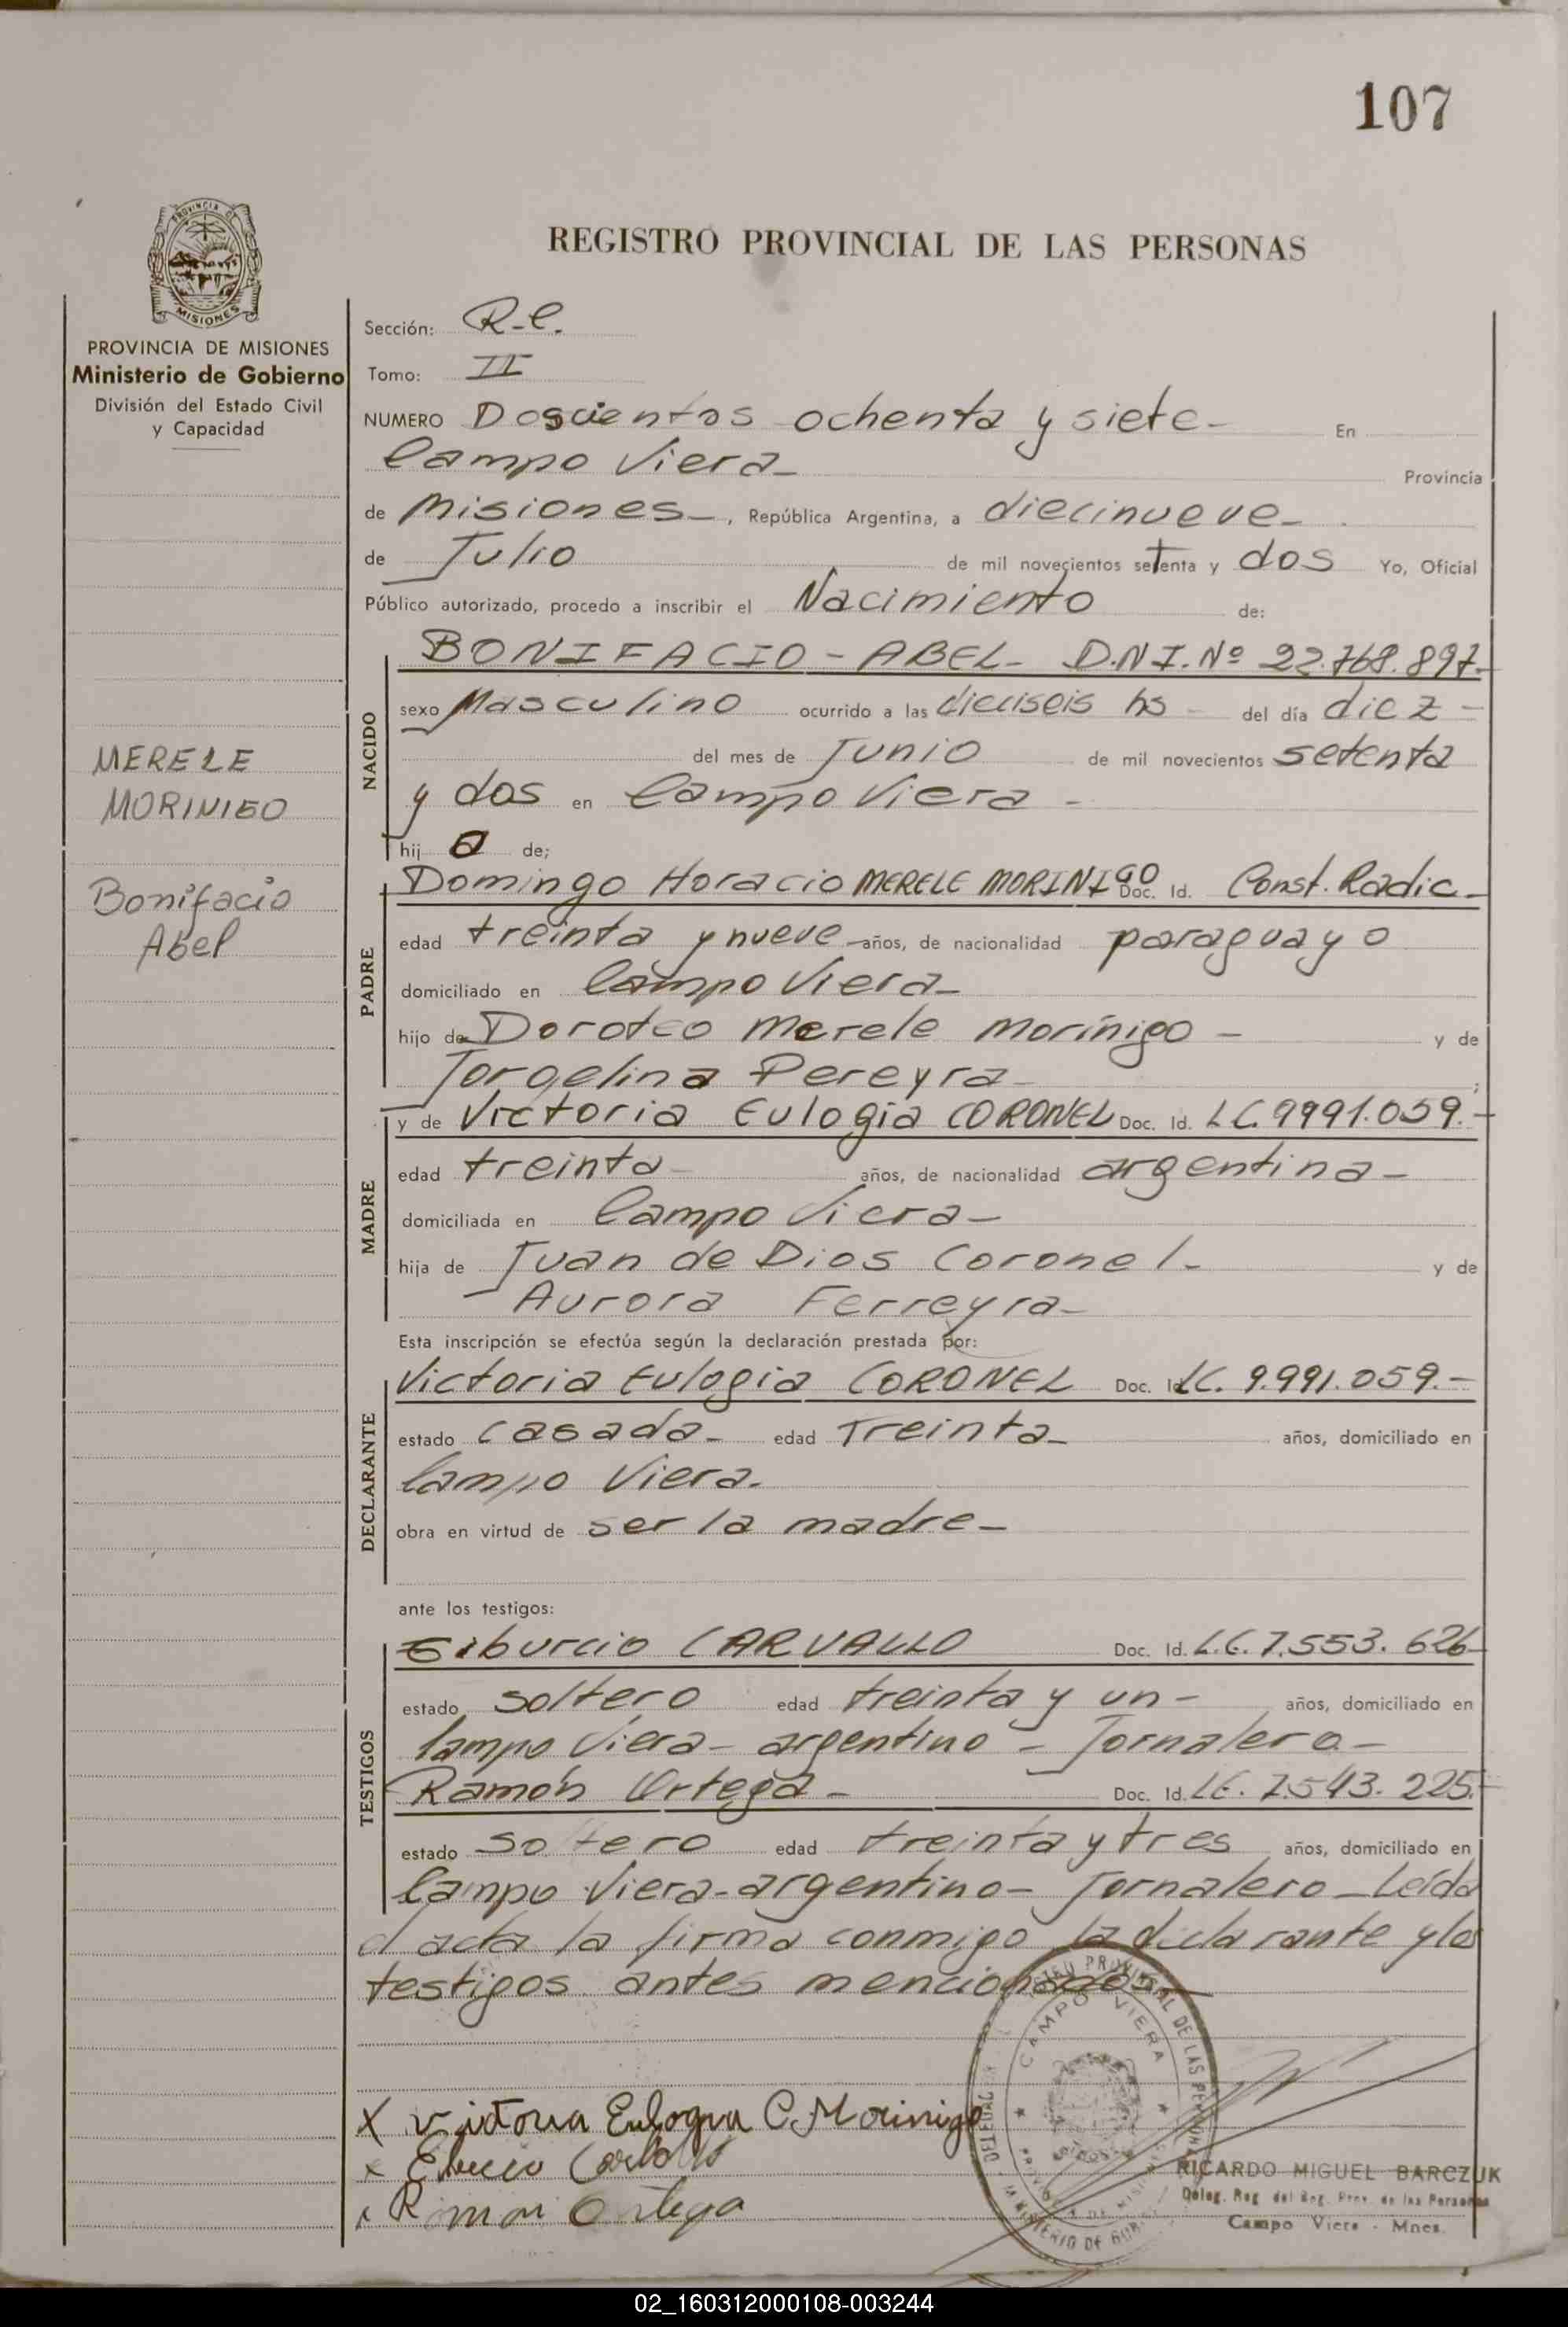 107
REGISTRO PROVINCIAL DE LAS PERSONAS
PROVINCIA DE
MISIONES
PROVINCIA DE MISIONES
Ministerio de Gobierno
División del Estado Civil
y Capacidad
MERELE
MORINIGO
Bonifacio
Abel
Sección: R-C.
Tomo: II
NUMERO Doscientos ochenta y siete- En
Campo Viera- Provincia
de Misiones-, República Argentina, a diecinueve-
de Julio de mil novecientos setenta y dos Yo, Oficial
Público autorizado, procedo a inscribir el Nacimiento de:
NACIDO
BONIFACIO - ABEL- D.N.I. Nº 22.768.897-
sexo Masculino ocurrido a las dieciseis hs - del día diez -
del mes de Junio de mil novecientos setenta
y dos en Campo Viera -
hij o de;
PADRE
Domingo Horacio MERELE MORINIGO Doc. Id. Const. Radic-
edad treinta y nueve años, de nacionalidad paraguayo
domiciliado en Campo Viera-
hijo de Doroteo Merele Morínigo - y de
Jorgelina Pereyra- ;
MADRE
y de Victoria Eulogia CORONEL Doc. Id. LC. 9991.059.-
edad treinta- años, de nacionalidad argentina-
domiciliada en Campo Viera-
hija de Juan de Dios Coronel- y de
Aurora Ferreyra-
Esta inscripción se efectúa según la declaración prestada por:
DECLARANTE
Victoria Eulogia CORONEL Doc. Id. LC. 9.991.059.-
estado casada- edad Treinta- años, domiciliado en
Campo Viera-
obra en virtud de ser la madre-
ante los testigos:
TESTIGOS
CARVALLO Doc. Id. L.E. 7.553. 626-
estado soltero edad treinta y un- años, domiciliado en
Campo Viera- argentino - Jornalero-
Ramón Ortega- Doc. Id. LE. 7.543. 225.-
estado soltero edad treinta y tres años, domiciliado en
Campo Viera-argentino- Jornalero-Leída
el acta la firma conmigo la declarante y los
testigos antes mencionados-
x Victoria Eulogia C. Morinigo
x
x Ramon Ortega
CAMPO VIERA
RICARDO MIGUEL BARCZUK
Deleg. Reg. del Reg. Prov. de las Personas
Campo Viera - Mnes.
02_160312000108-003244